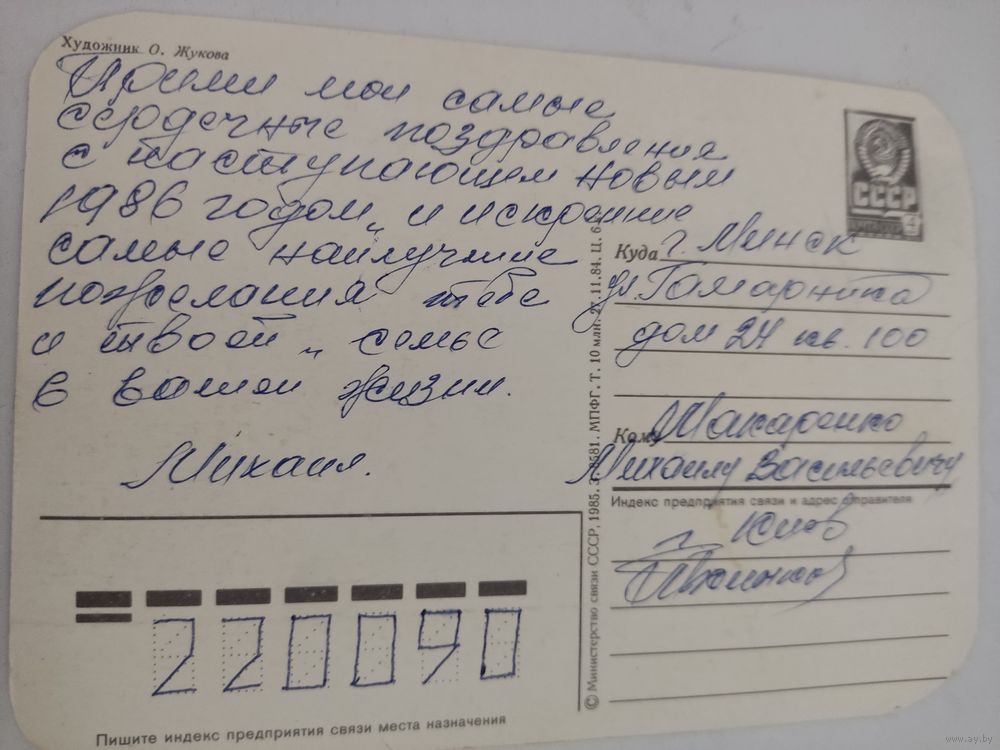 Художник О. Жукова
Прими мои самые
сердечные поздравления
с наступающим новым
1986 годом, и искренние
самые наилучшие
пожелания тебе
и твоей семье
в вашей жизни.
Михаил.
СССР
4
Куда г. Минск
ул. Гамарника
дом 24 кв. 100
Кому Макаренко
Михаилу Васильевичу
Индекс предприятия связи и адрес отправителя
г. Киев
220090
Пишите индекс предприятия связи места назначения
© Министерство связи СССР, 1985. МПФГ. Т. 10 млн. 27.11.84. Ц. 6 к.
www.ay.by